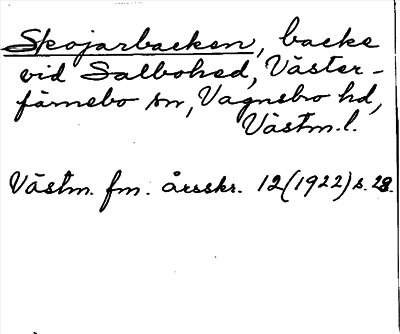 Skojarbacken, backe
vid Salbohed, Väster-
färnebo sn, Vagnsbro hd,
Västm.l.
Västm. fm. årsskr. 12(1922)s. 28.